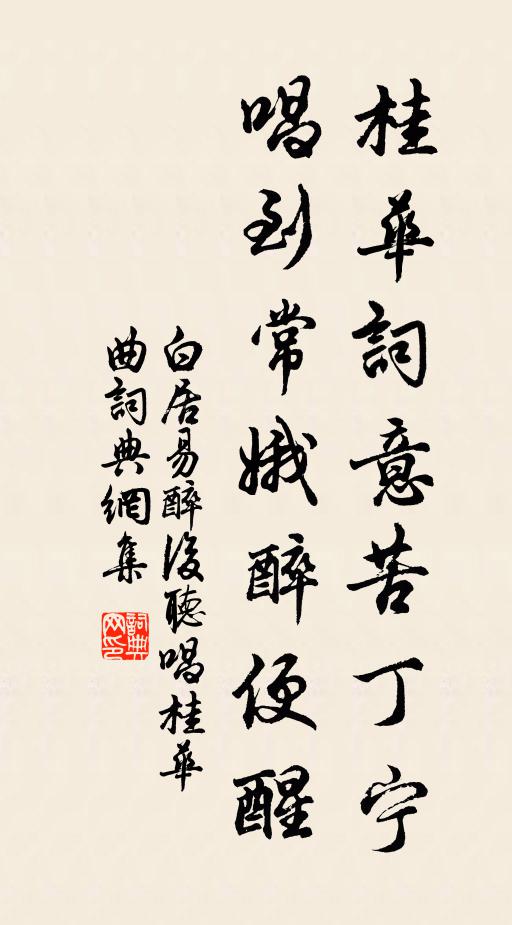 桂華詞意苦丁宁
唱到常娥醉便醒
白居易醉後聽唱桂華
曲詞典網集
詞典
网印